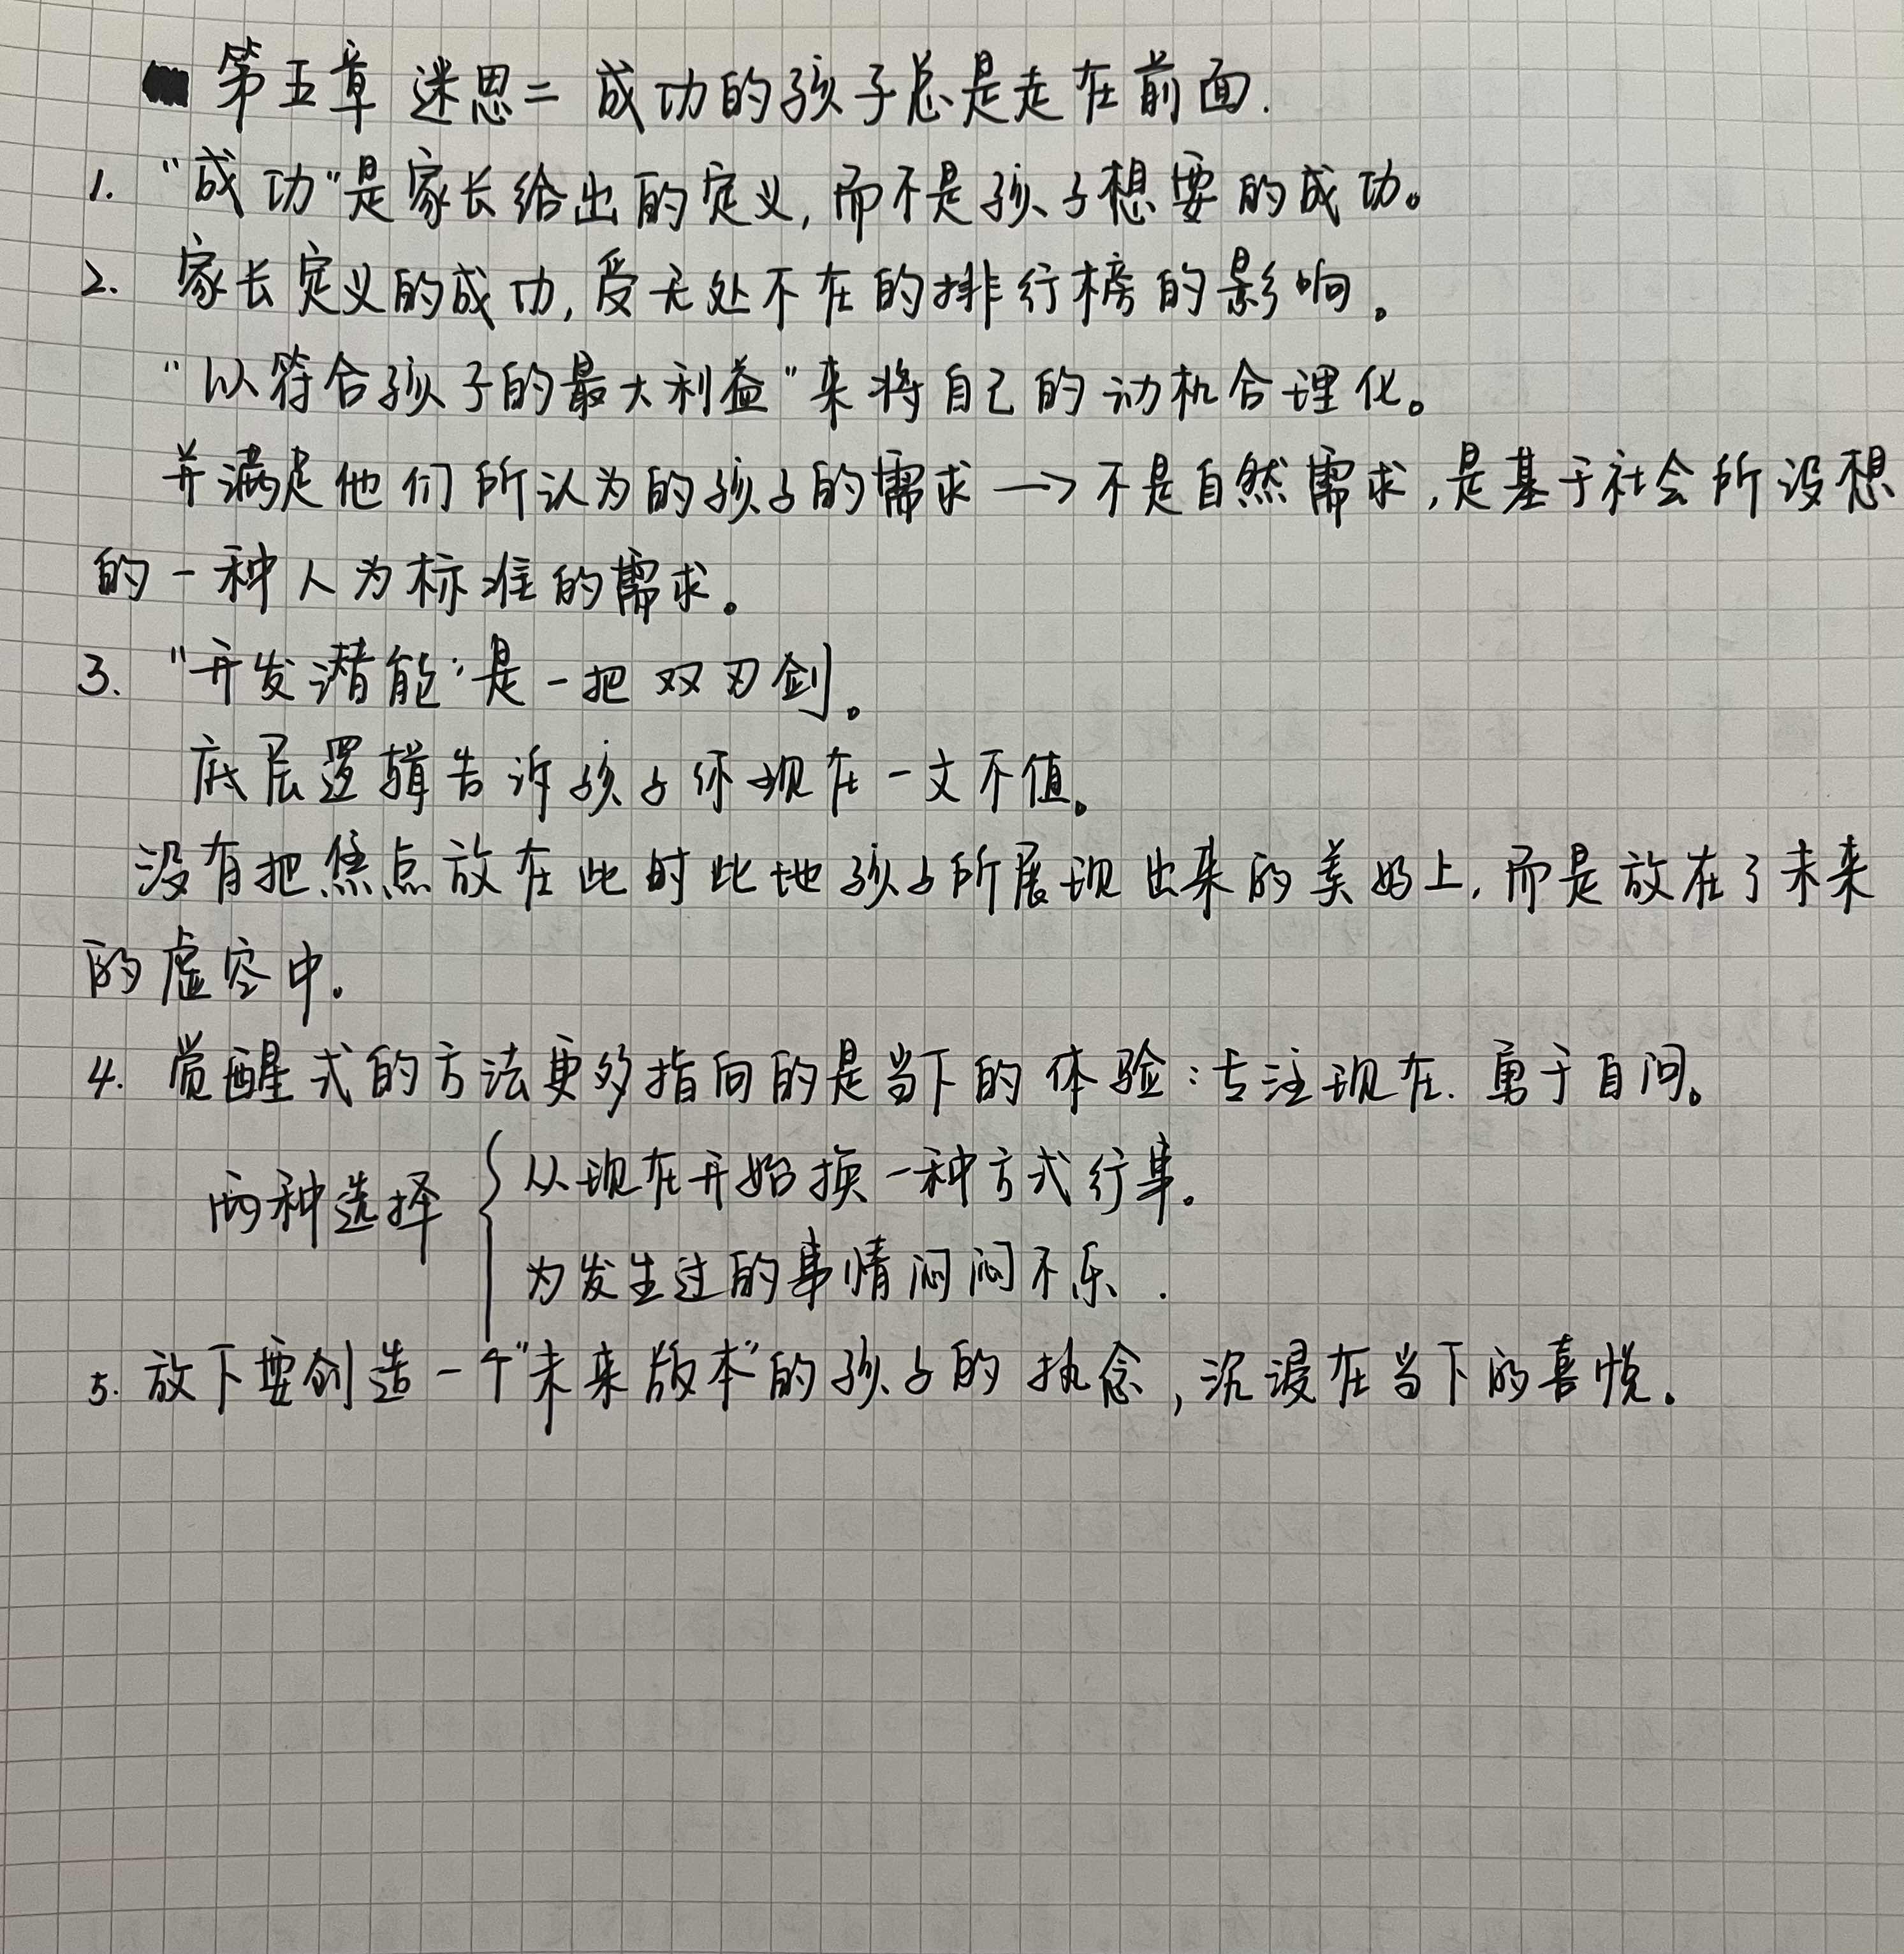 第五章 迷思二 成功的孩子总是走在前面.
1. “成功”是家长给出的定义, 而不是孩子想要的成功。
2. 家长定义的成功, 受无处不在的排行榜的影响。
“以符合孩子的最大利益”来将自己的动机合理化。
并满足他们所认为的孩子的需求 → 不是自然需求, 是基于社会所设想
的一种人为标准的需求。
3. “开发潜能”是一把双刃剑。
底层逻辑告诉孩子你现在一文不值。
没有把焦点放在此时此地孩子所展现出来的美好上, 而是放在了未来
的虚空中。
4. 觉醒式的方法更多指向的是当下的体验: 专注现在. 勇于自问。
两种选择 { 从现在开始换一种方式行事。
为发生过的事情闷闷不乐.
5. 放下要创造一个“未来版本”的孩子的执念, 沉浸在当下的喜悦。